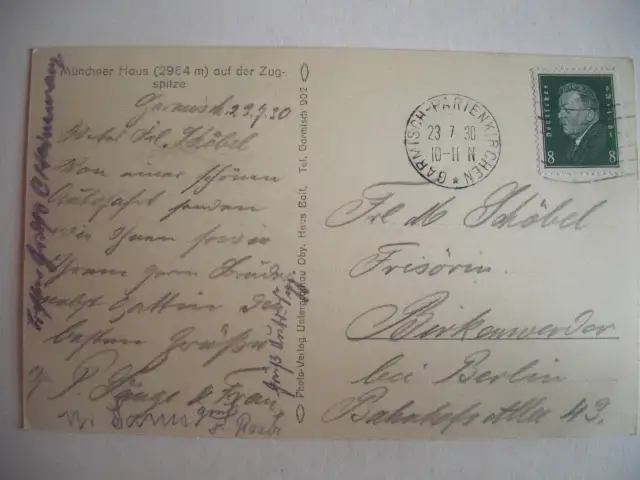 Münchner Haus (2964 m) auf der Zug-
spitze
Garmisch 23.7.30
Frl. Schöbel
Von einer schönen
Autofahrt senden
wir Ihnen sowie
Ihrem Bruder
nebst Gattin die
besten Grüße
Frau
Photo-Verlag. Unterammergau Oby. Haus Tel. Garmisch 902
GARMISCH-PARTENKIRCHEN
23 7 30
10-11 N
DEUTSCHES REICH
8 8
Frl. M Schöbel
Frisörin
Birkenwerder
bei Berlin
Bahnhofsallee 43.